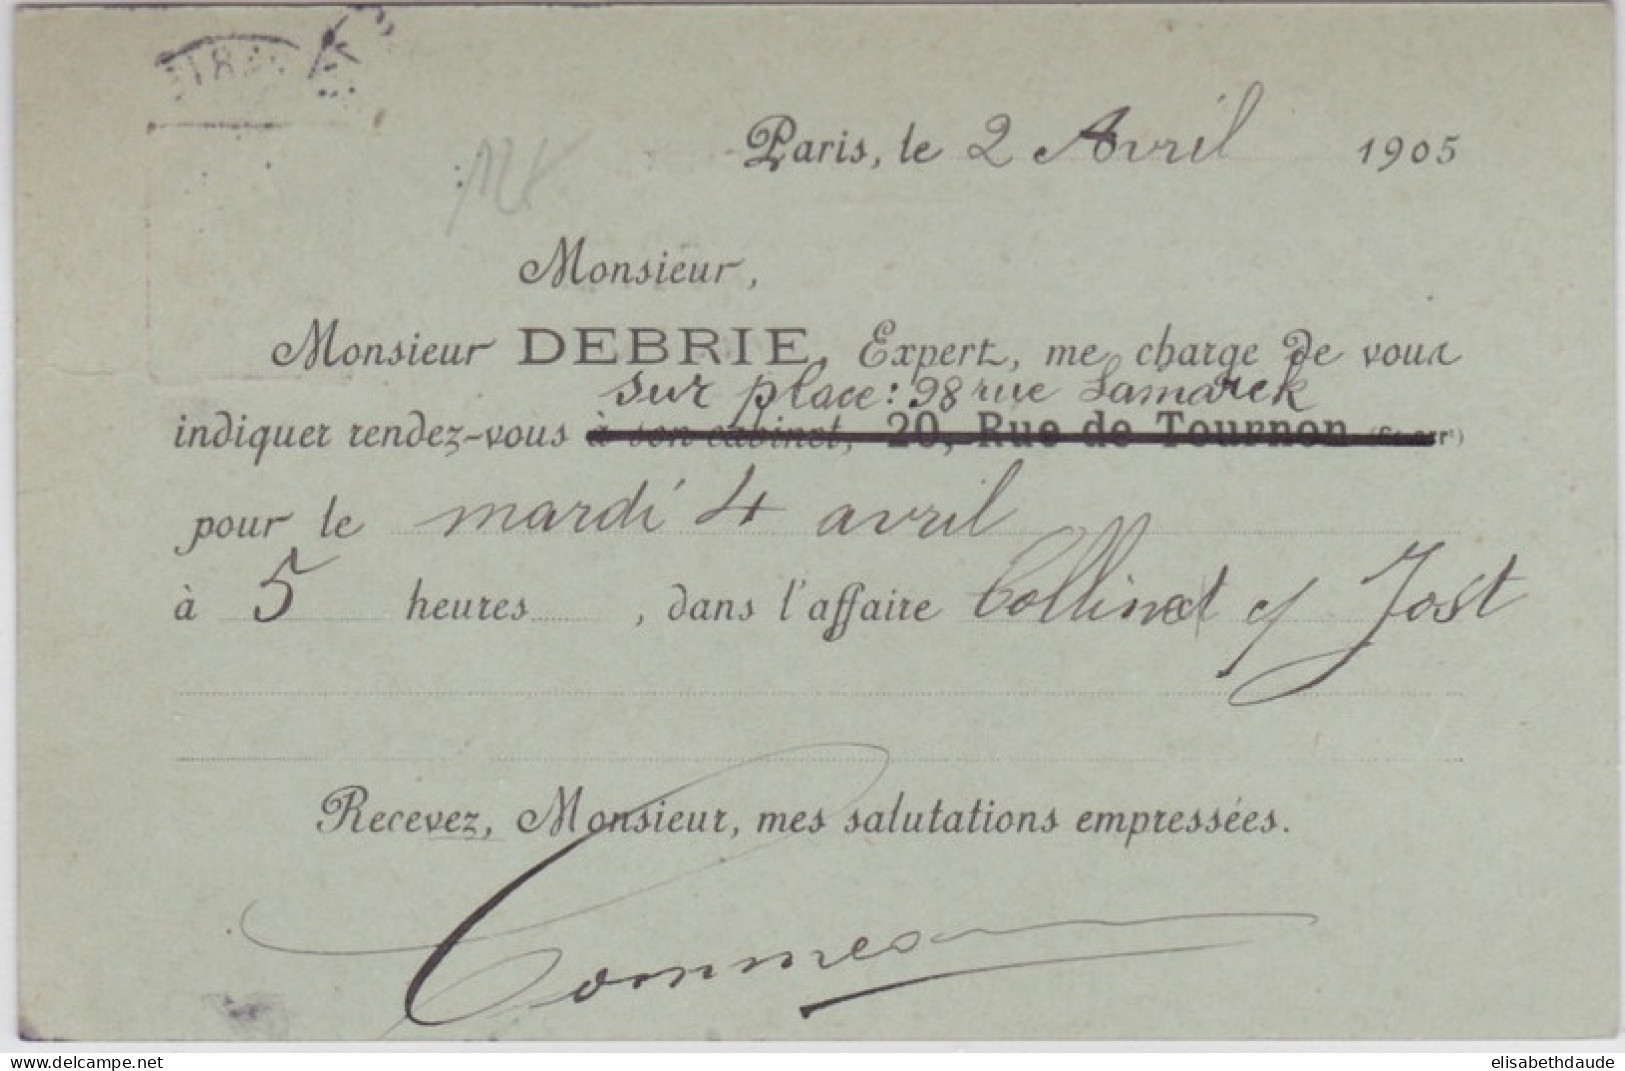 Paris, le 2 Avril 1905
Monsieur,
Monsieur DEBRIE, Expert, me charge de vous
sur place : 98 rue Lamarck
indiquer rendez-vous à son cabinet, 20, Rue de Tournon
pour le mardi 4 avril
à 5 heures , dans l'affaire Collinet c/ Jost
Recevez, Monsieur, mes salutations empressées.
www.delcampe.net
elisabethdaude